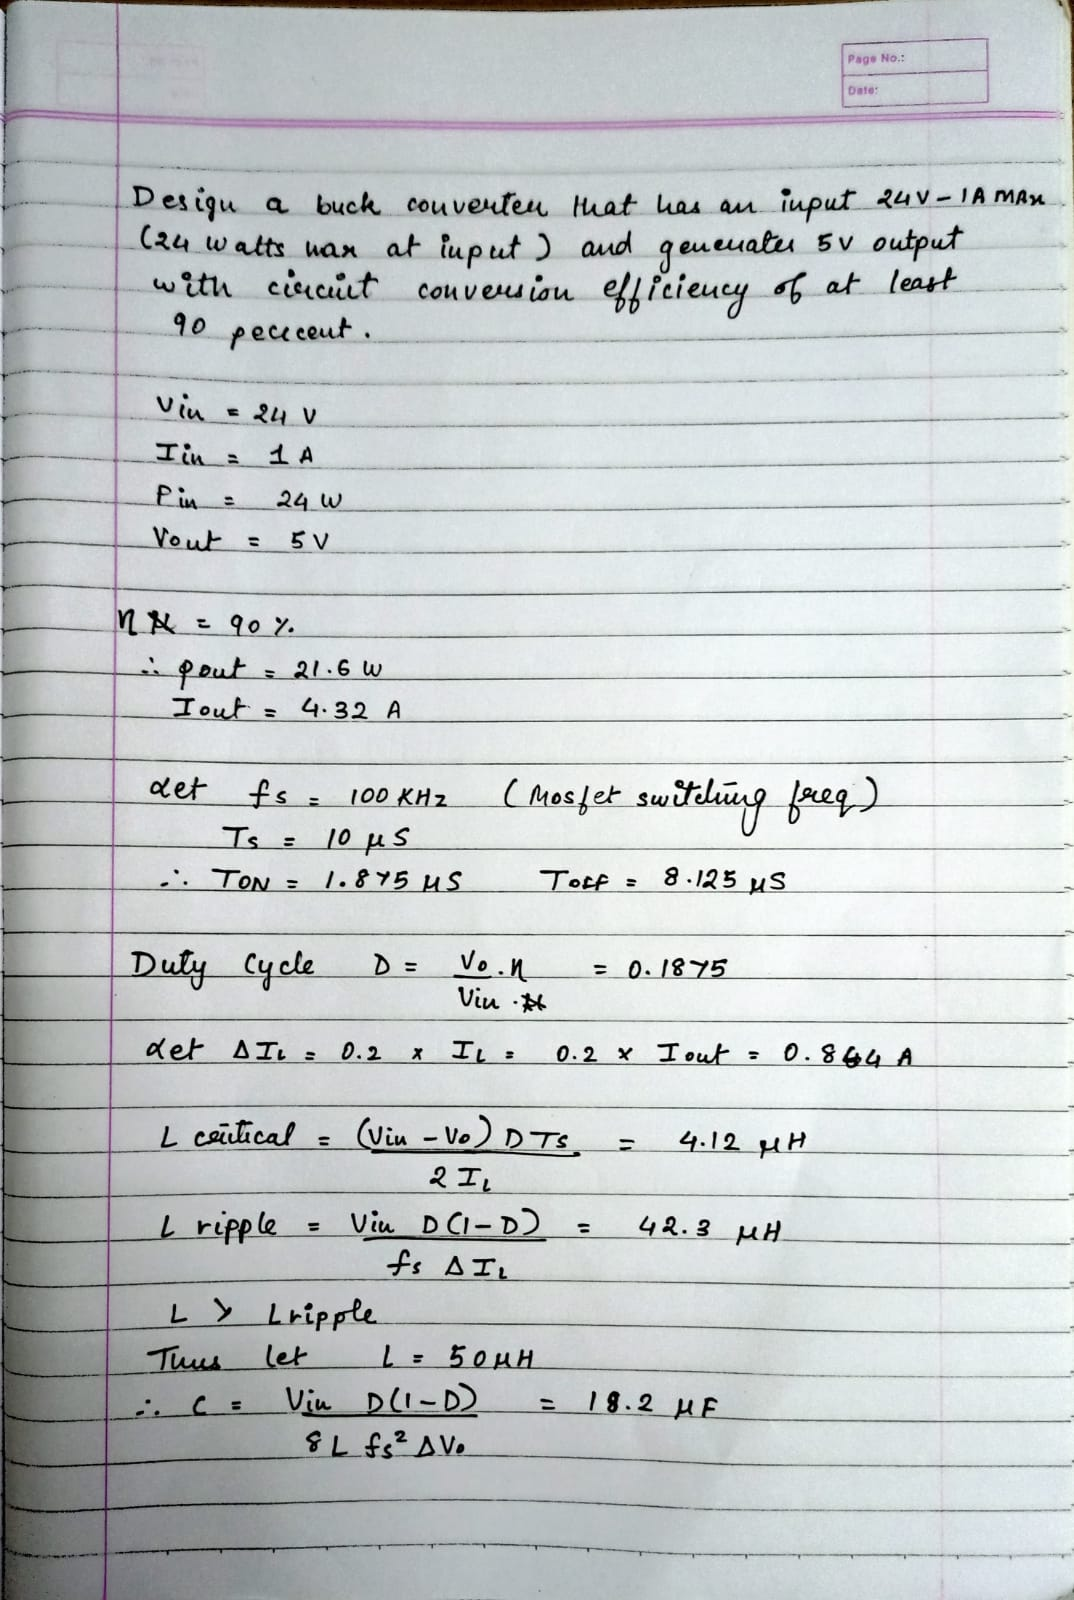 Page No.:
Date:
Design a buck converter that has an input 24V - 1A MAX
(24 watts max at input) and generates 5V output
with circuit conversion efficiency of at least
90 percent.
Vin = 24 V
Iin = 1 A
Pin = 24 W
Vout = 5V
η = 90 %.
∴ Pout = 21.6 W
Iout = 4.32 A
Let fs = 100 KHz (Mosfet switching freq)
Ts = 10 μS
∴ TON = 1.875 μS Toff = 8.125 μS
Duty Cycle D = Vo.η / Vin = 0.1875
Let ΔIL = 0.2 x IL = 0.2 x Iout = 0.864 A
L critical = (Vin - Vo) D Ts / 2 IL = 4.12 μH
L ripple = Vin D(1-D) / fs ΔIL = 42.3 μH
L > Lripple
Thus let L = 50 μH
∴ C = Vin D(1-D) / 8 L fs² ΔVo = 18.2 μF